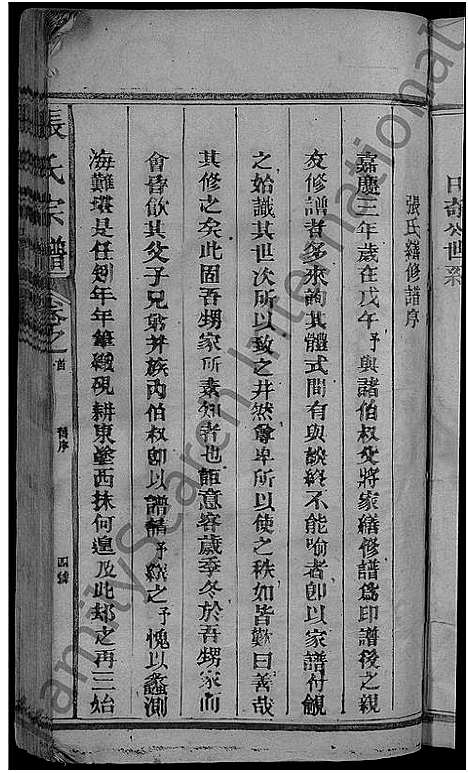 日奇公世系
張氏續修譜序
嘉慶三年歲在戊午予與諸伯叔父將家續修譜為印譜後之親
友修譜者多來詢其體式間有與談終不能喻者即以家譜付觀
之始識其世次所以致之井然尊卑所以使之秩如皆歎曰善哉
其修之矣此固吾甥家所素知者也詎意客歲季冬於吾甥家而
會昏飲其父子兄弟并族內伯叔即以譜請予纂之予愧以蠡測
海難堪是任矧年年筆綴硯耕東塗西抹何遑及此却之再三始
張氏宗譜
卷之首
舊序
四號
FamilySearch International